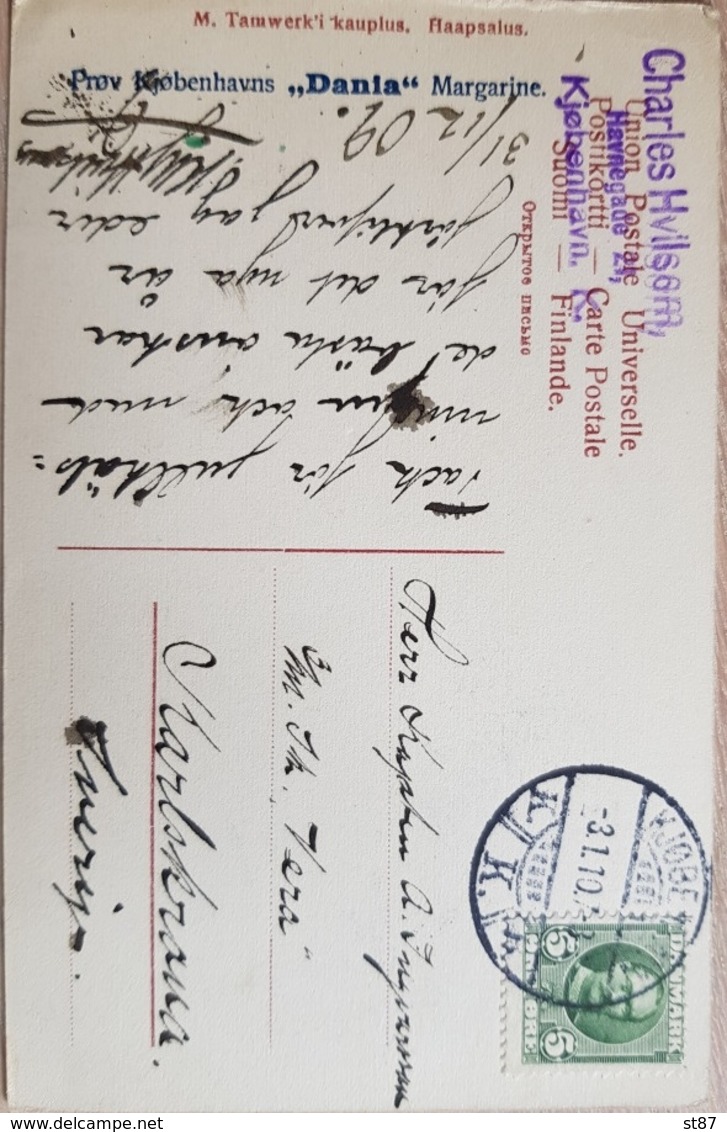 M. Tamwerk'i kauplus. Haapsalus.
Prøv Kjøbenhavns „Dania“ Margarine.
Charles Hvilsom,
Havnegade
Kjøbenhavn. K.
Union Postale Universelle.
Postikortti — Carte Postale
Suomi — Finlande.
Открытое письмо
31/12 09.
Tack för jullhäls=
ningen och med
de bästa önskar
för det nya år
jag eder
Herr Kapten A. Ingvarsson
"Vera"
Karlskrona.
Sverije.
KJØBE
K.
-3.1.10.
K.
DANMARK
5 5
ØRE
st87